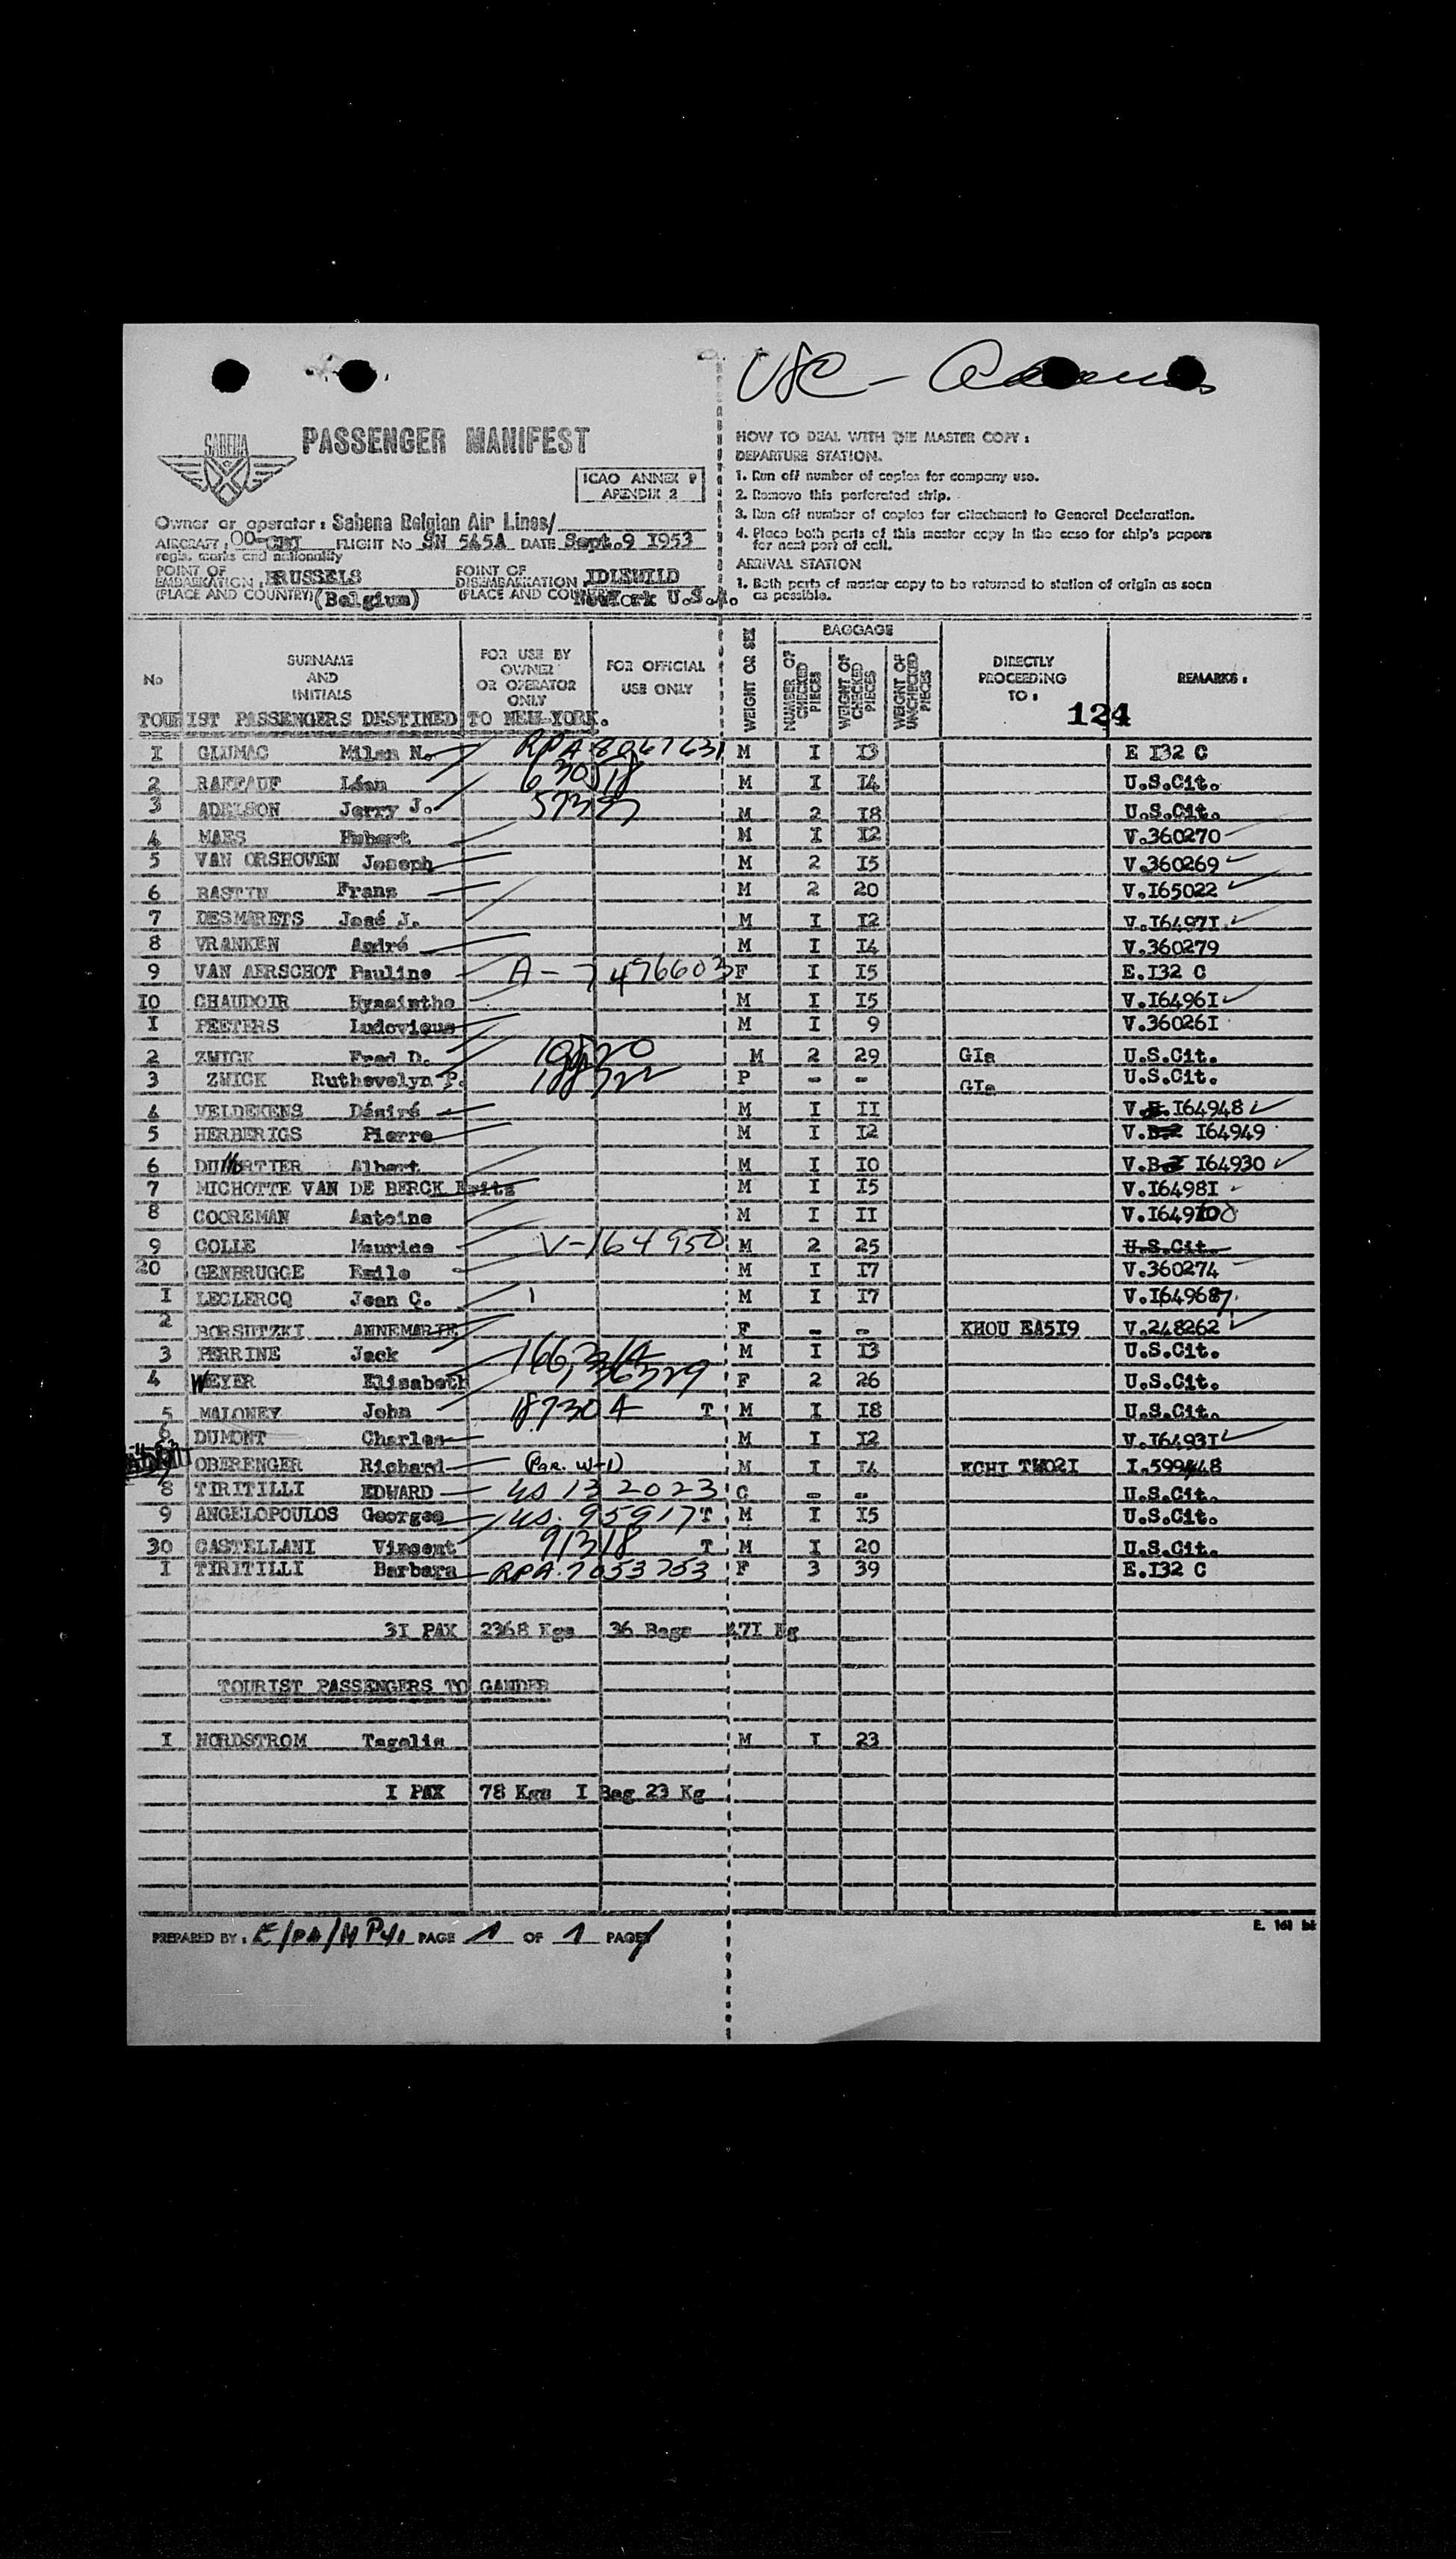 USC -
SABENA
PASSENGER MANIFEST
ICAO ANNEX 9
APENDIX 2
Owner or operator : Sabena Belgian Air Lines/
AIRCRAFT : OO- FLIGHT No SN 545A DATE Sept.9 I953
regis. marks and nationality
POINT OF EMBARKATION : BRUSSELS POINT OF DISEMBARKATION : IDLEWILD
(PLACE AND COUNTRY) (Belgium) (PLACE AND COUNTRY) New York U.S.A.
HOW TO DEAL WITH THE MASTER COPY :
DEPARTURE STATION.
1. Run off number of copies for company use.
2. Remove this perforated strip.
3. Run off number of copies for attachment to General Declaration.
4. Place both parts of this master copy in the case for ship's papers
for next port of call.
ARRIVAL STATION
1. Both parts of master copy to be returned to station of origin as soon
as possible.
No SURNAME AND INITIALS FOR USE BY OWNER OR OPERATOR ONLY FOR OFFICIAL USE ONLY WEIGHT OR SEX BAGGAGE NUMBER OF CHECKED PIECES WEIGHT OF CHECKED PIECES WEIGHT OF UNCHECKED PIECES DIRECTLY PROCEEDING TO : REMARKS :
124
TOURIST PASSENGERS DESTINED TO NEW-YORK.
I GLUMAC Milan N. RPA 8067631 M I I3 E I32 C
2 RAFFAUF Léon 630518 M I I4 U.S.Cit.
3 ADELSON Jerry J. M 2 I8 U.S.Cit.
4 MAES Hubert M I I2 V.360270
5 VAN ORSHOVEN Joseph M 2 I5 V.360269
6 BASTIN Frans M 2 20 V.I65022
7 DESMARETS José J. M I I2 V.I6497I
8 VRANKEN André M I I4 V.360279
9 VAN AERSCHOT Pauline A-7496603 F I I5 E.I32 C
I0 CHAUDOIR Hyacinthe M I I5 V.I6496I
I PEETERS Ludovicus M I 9 V.36026I
2 ZWICK Fred D. M 2 29 GIa U.S.Cit.
3 ZWICK Ruthevelyn P. F - - GIa U.S.Cit.
4 VELDEKENS Désiré M I II V. I64948
5 HERBERIGS Pierre M I I2 V. I64949
6 DUMORTIER Albert M I I0 V. I64930
7 MICHOTTE VAN DE BERCK Fritz M I I5 V.I6498I
8 COOREMAN Antoine M I II
9 COLLE Maurice V-164950 M 2 25 U.S.Cit.
20 GENBRUGGE Emile M I I7 V.360274
I LECLERCQ Jean C. M I I7 V.I64967
2 BORSUTZKI ANNEMARIE F - - KHOU EA5I9 V.248262
3 PERRINE Jack M I I3 U.S.Cit.
4 WEYER Elisabeth F 2 26 U.S.Cit.
5 MALONEY John 187304 T M I I8 U.S.Cit.
6 DUMONT Charles M I I2 V.I6493I
7 OBERENGER Richard (Par. W-1) M I I4 KCHI TW02I I.599448
8 TIRITILLI EDWARD US 132023 C - - U.S.Cit.
9 ANGELOPOULOS Georges US. 95917 T M I I5 U.S.Cit.
30 CASTELLANI Vincent 91318 T M I 20 U.S.Cit.
I TIRITILLI Barbara RPA 7053753 F 3 39 E.I32 C
3I PAX 2368 Kgs 36 Bags 47I Kg
TOURIST PASSENGERS TO GANDER
I NORDSTROM Tagelia M I 23
I PAX 78 Kgs I Bag 23 Kg
PREPARED BY : PAGE 1 OF 1 PAGE
E. 161 bi